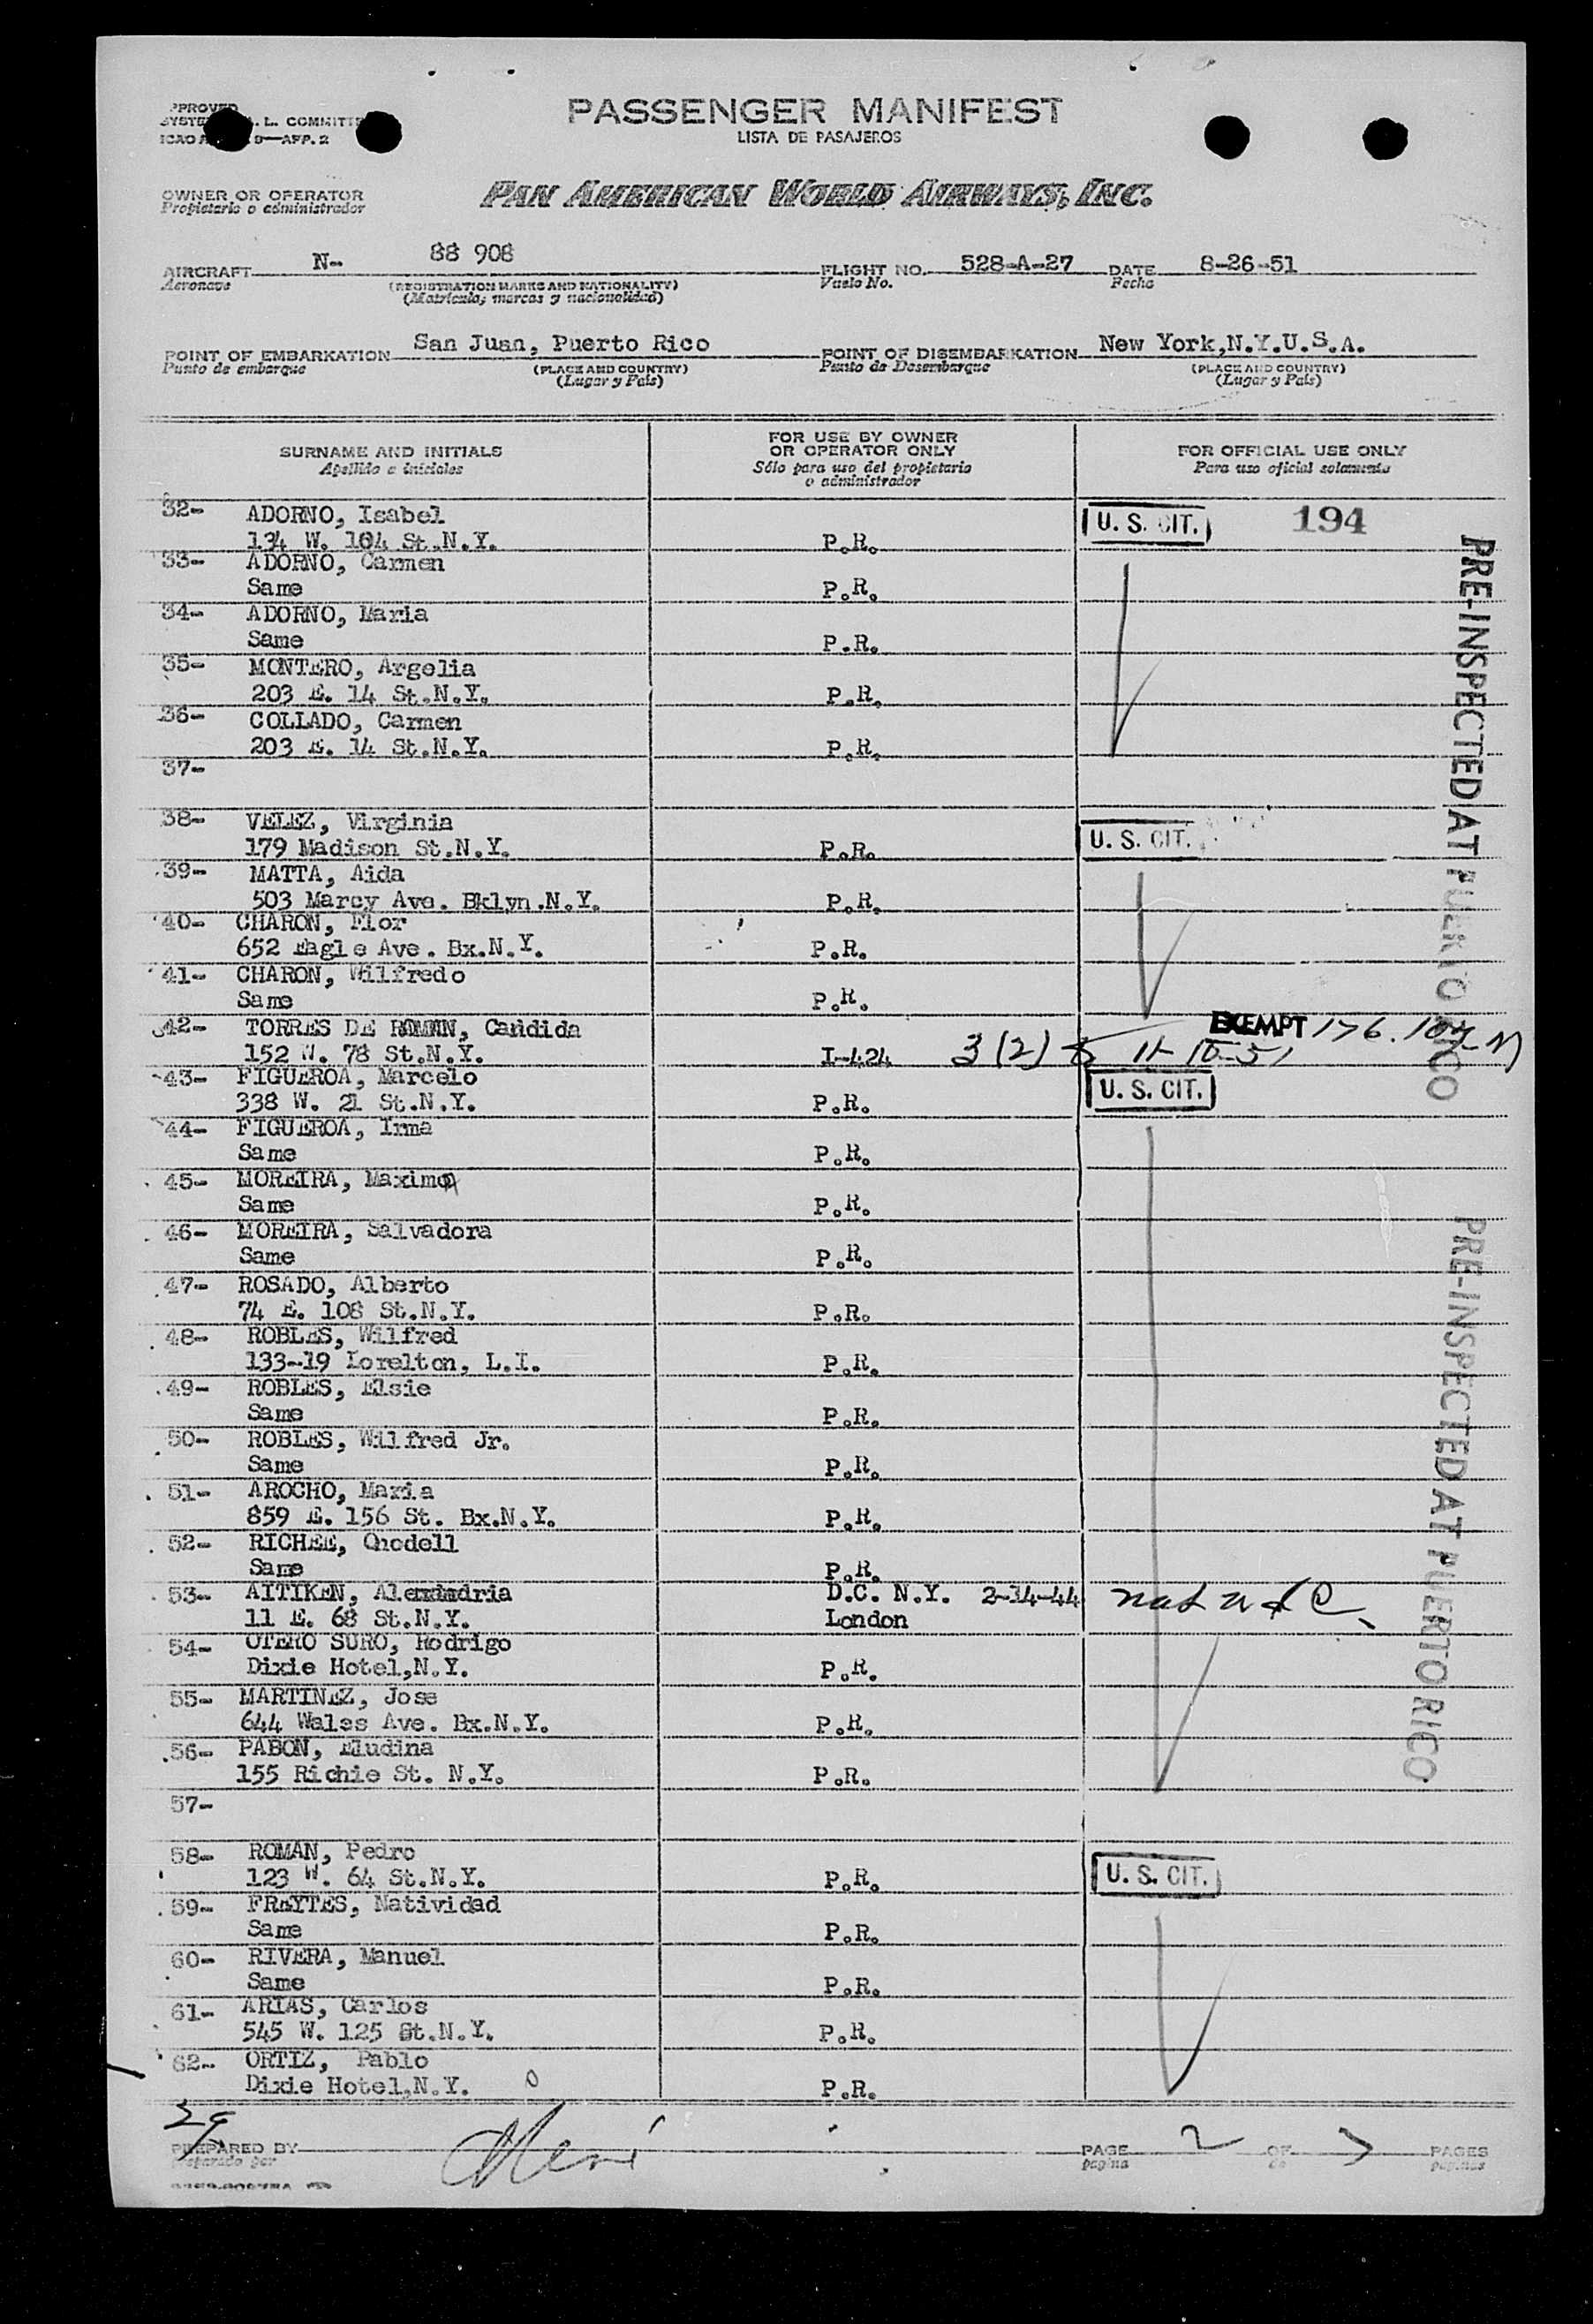 PASSENGER MANIFEST
LISTA DE PASAJEROS
OWNER OR OPERATOR
Propietario o administrador
PAN AMERICAN WORLD AIRWAYS, INC.
AIRCRAFT N- 88 908
Aeronave
(REGISTRATION MARKS AND NATIONALITY)
(Matricula, marcas y nacionalidad)
FLIGHT NO. 528-A-27
Vuelo No.
DATE 8-26-51
Fecha
POINT OF EMBARKATION San Juan, Puerto Rico
Punto de embarque
(PLACE AND COUNTRY)
(Lugar y País)
POINT OF DISEMBARKATION New York,N.Y.U.S.A.
Punto de Desembarque
(PLACE AND COUNTRY)
(Lugar y País)
SURNAME AND INITIALS
Apellido e iniciales
FOR USE BY OWNER
OR OPERATOR ONLY
Sólo para uso del propietario
o administrador
FOR OFFICIAL USE ONLY
Para uso oficial solamente
32- ADORNO, Isabel U. S. CIT. 194
134 W. 104 St.N.Y. P.R.
33- ADORNO, Carmen
Same P.R.
34- ADORNO, Maria
Same P.R.
35- MONTERO, Argelia
203 E. 14 St.N.Y. P.R.
36- COLLADO, Carmen
203 E. 14 St.N.Y. P.R.
37-
38- VELEZ, Virginia U. S. CIT.
179 Madison St.N.Y. P.R.
39- MATTA, Aida
503 Marcy Ave. Bklyn.N.Y. P.R.
40- CHARON, Flor
652 Eagle Ave. Bx.N.Y. P.R.
41- CHARON, Wilfredo
Same P.R.
42- TORRES DE ROMAN, Candida EXEMPT
152 W. 78 St.N.Y. I-424 3(2)
43- FIGUEROA, Marcelo U. S. CIT.
338 W. 21 St.N.Y. P.R.
44- FIGUEROA, Irma
Same P.R.
45- MOREIRA, Maxima
Same P.R.
46- MOREIRA, Salvadora
Same P.R.
47- ROSADO, Alberto
74 E. 108 St.N.Y. P.R.
48- ROBLES, Wilfred
133-19 Lorelton, L.I. P.R.
49- ROBLES, Elsie
Same P.R.
50- ROBLES, Wilfred Jr.
Same P.R.
51- AROCHO, Maria
859 E. 156 St. Bx.N.Y. P.R.
52- RICHEE, Qhodell
Same P.R.
53- AITIKEN, D.C. N.Y. 2-14-44
11 E. 68 St.N.Y. London
54- OTERO SURO, Rodrigo
Dixie Hotel,N.Y. P.R.
55- MARTINEZ, Jose
644 Wales Ave. Bx.N.Y. P.R.
56- PABON, Eludina
155 Richie St. N.Y. P.R.
57-
58- ROMAN, Pedro U. S. CIT.
123 W. 64 St.N.Y. P.R.
59- FREYTES, Natividad
Same P.R.
60- RIVERA, Manuel
Same P.R.
61- ARIAS, Carlos
545 W. 125 St.N.Y. P.R.
62- ORTIZ, Pablo
Dixie Hotel,N.Y. P.R.
PRE-INSPECTED AT PUERTO RICO
PRE-INSPECTED AT PUERTO RICO
29
PREPARED BY
Preparado por
PAGE 2 OF PAGES
pagina de paginas